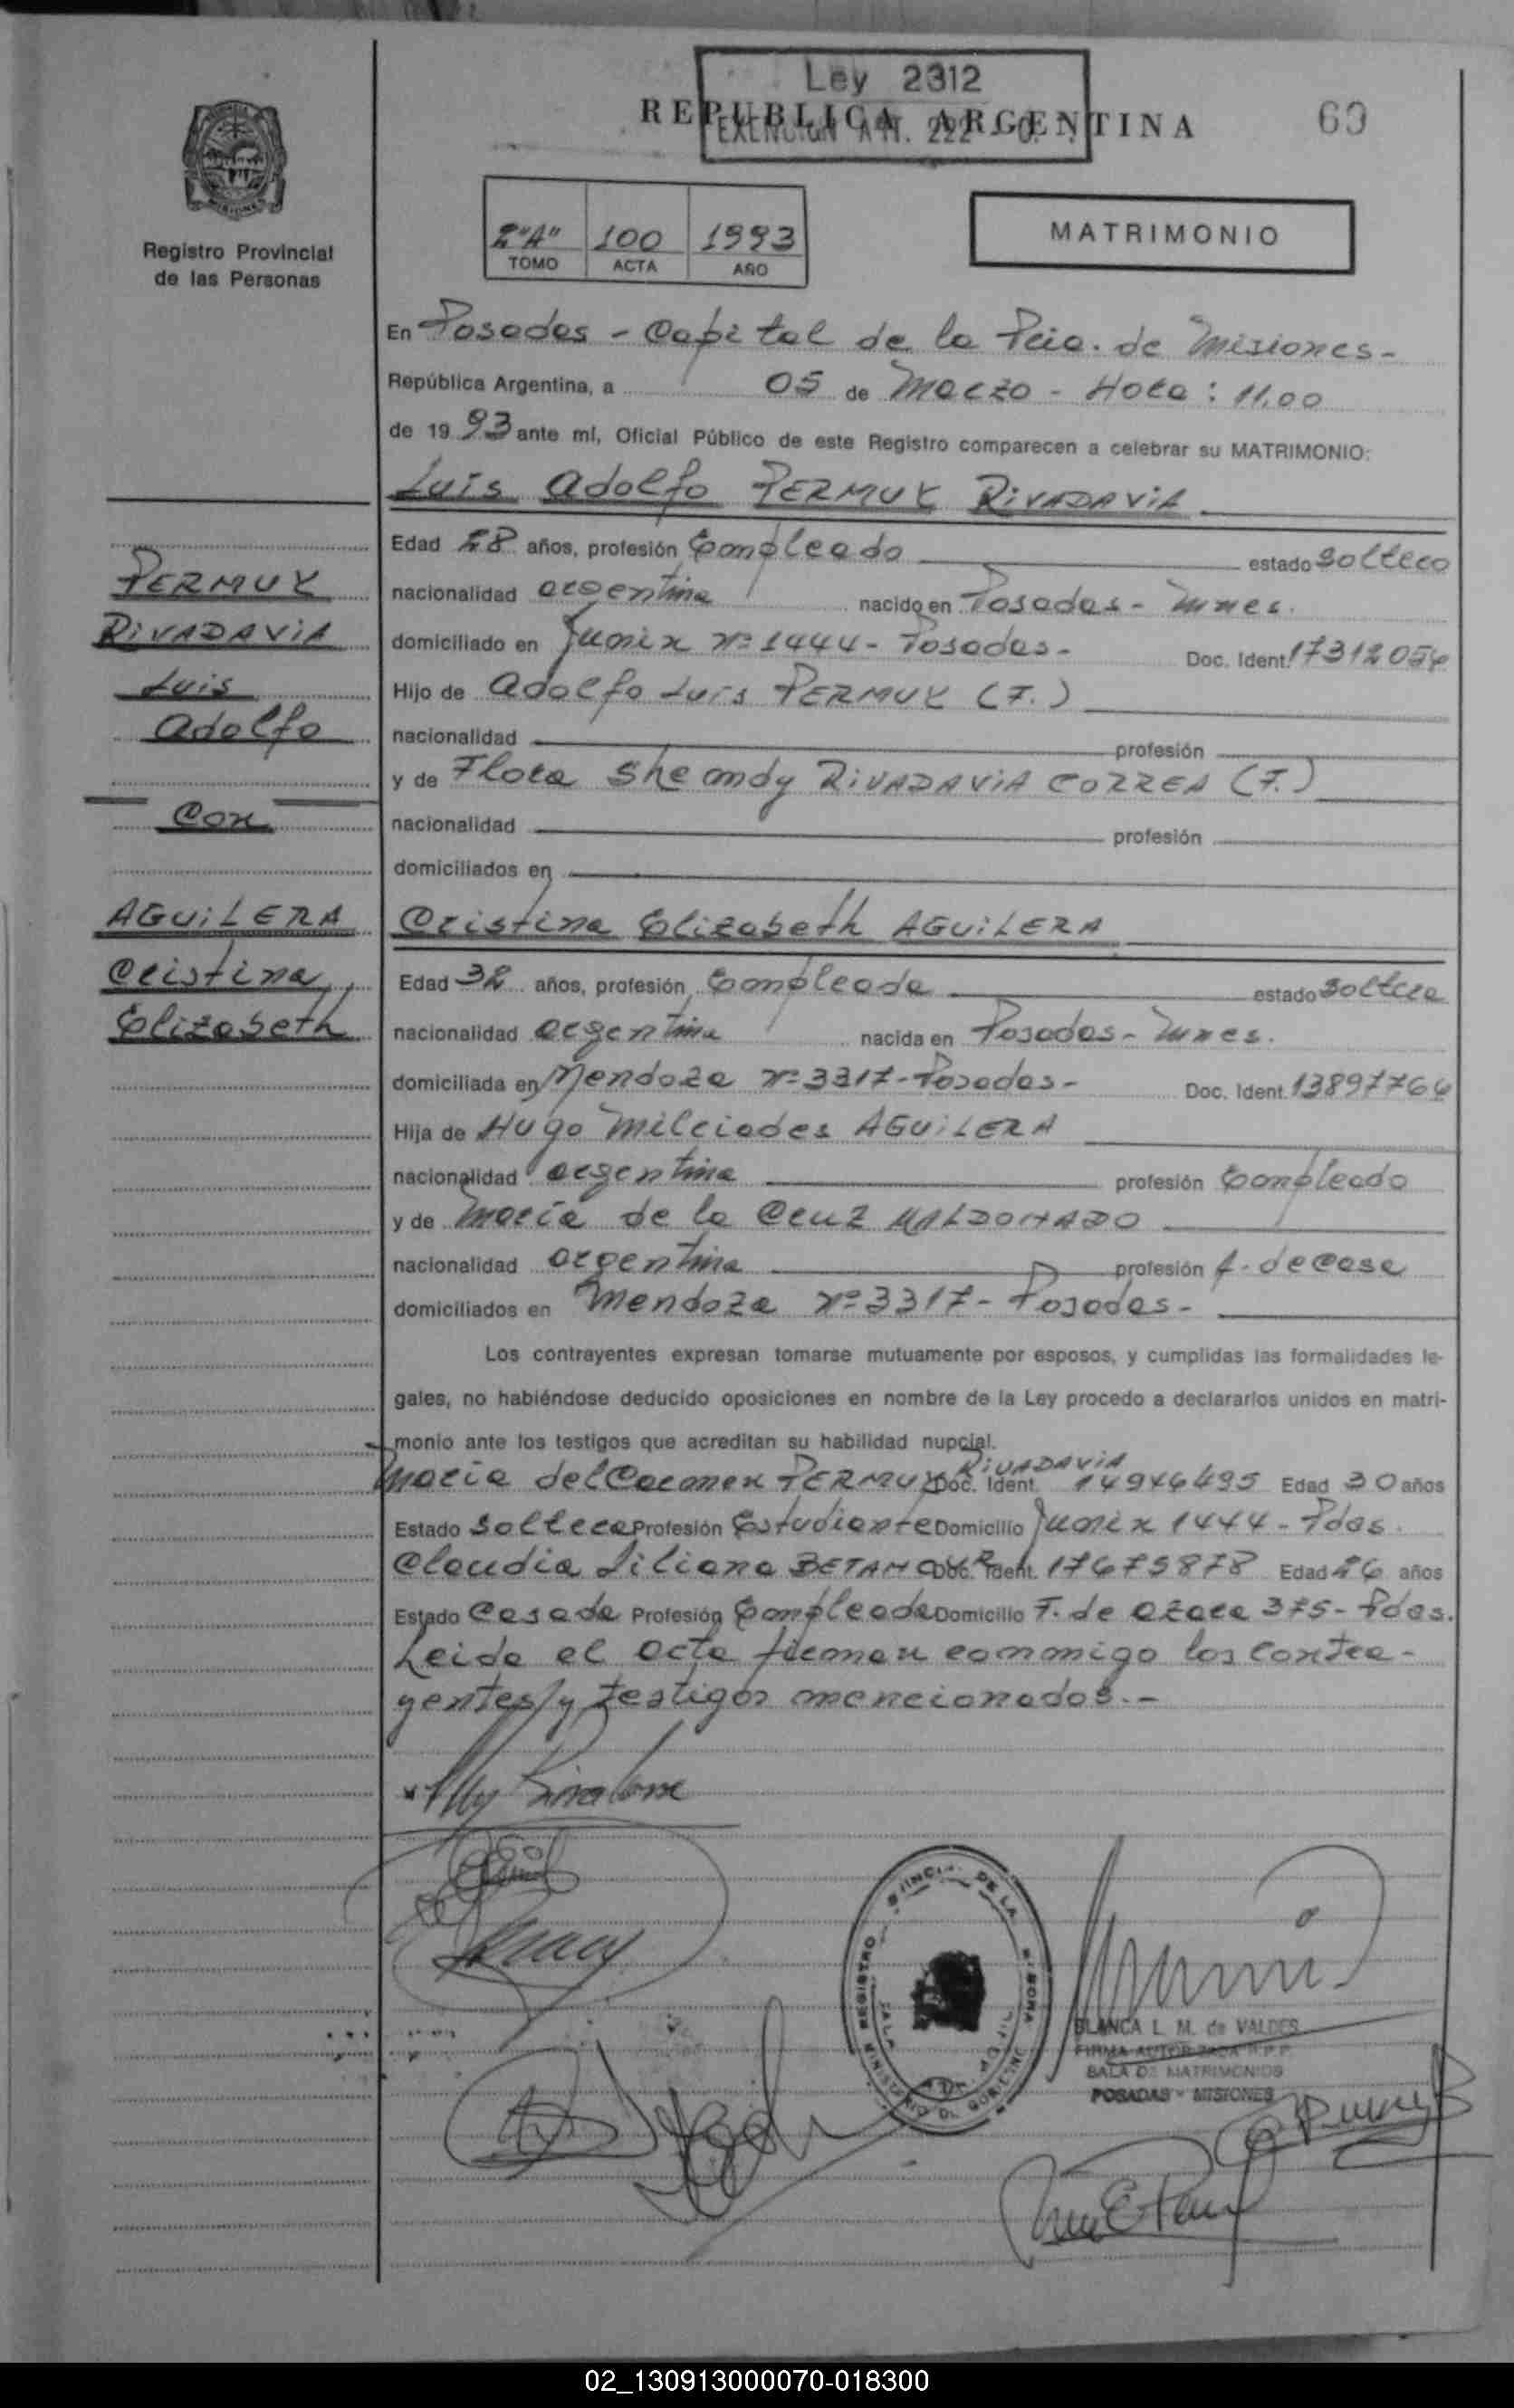 Ley 2312
REPUBLICA ARGENTINA
EXENCION ART. 222
60
Registro Provincial
de las Personas
2"A" 100 1993
TOMO ACTA AÑO
MATRIMONIO
En Posadas - Capital de la Pcia. de Misiones-
República Argentina, a 05 de Marzo - Hora: 11.00
de 19 93 ante mí, Oficial Público de este Registro comparecen a celebrar su MATRIMONIO:
Luis Adolfo PERMUY RIVADAVIA
Edad 28 años, profesión Empleado estado Soltero
nacionalidad argentina nacido en Posadas - Mnes.
domiciliado en Junín Nº 1444 - Posadas - Doc. Ident.
Hijo de Adolfo Luis PERMUY (F.)
nacionalidad profesión
y de Flora Sheandy RIVADAVIA CORREA (F.)
nacionalidad profesión
domiciliados en
PERMUY
RIVADAVIA
Luis
Adolfo
Con
AGUILERA
Cristina
Elizabeth
Cristina Elizabeth AGUILERA
Edad 32 años, profesión Empleada estado Soltera
nacionalidad argentina nacida en Posadas - Mnes.
domiciliada en Mendoza Nº 3317 - Posadas - Doc. Ident. 13897764
Hija de Hugo Milciades AGUILERA
nacionalidad argentina profesión Empleado
y de María de la Cruz MALDONADO
nacionalidad argentina profesión A. de Casa
domiciliados en Mendoza Nº 3317 - Posadas -
Los contrayentes expresan tomarse mutuamente por esposos, y cumplidas las formalidades le-
gales, no habiéndose deducido oposiciones en nombre de la Ley procedo a declararlos unidos en matri-
monio ante los testigos que acreditan su habilidad nupcial.
María del Carmen PERMUY RIVADAVIA Doc. Ident. 14946495 Edad 30 años
Estado Soltera Profesión Estudiante Domicilio Junín 1444 - Pdas.
Claudia Liliana BETANCUR Doc. Ident. 17675878 Edad 26 años
Estado Casada Profesión Empleada Domicilio F. de Azara 375 - Pdas.
Leida el acta firman conmigo los contra-
yentes y testigos mencionados.-
BLANCA L. M. de VALDES
FIRMA AUTORIZADA R.P.P.
SALA DE MATRIMONIOS
POSADAS - MISIONES
02_130913000070-018300